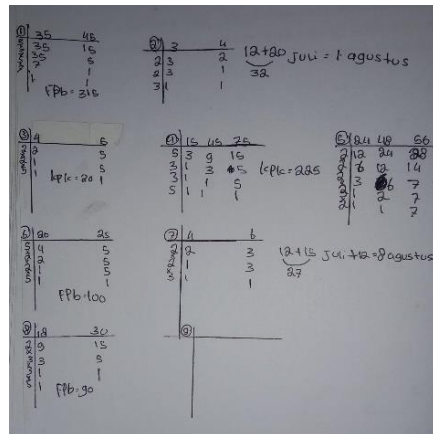 ① 35 45
35 15
35 5
7 1
1 1
Fpb = 315
② 3 4
2 3 2
2 3 1
3 1 1
12+20 juli = 1 agustus
32
③ 4 5
2 5
1 5
1 1
kpk = 20
④ 15 45 75
5 3 9 15
3 1 3 5
3 1 1 5
5 1 1 1
kpk = 225
⑤ 24 48 56
2 12 24 28
2 6 12 14
2 3 6 7
1 2 7
2 1 1 7
20 25
4 5
2 5
1 5
1 1
Fpb = 100
⑦ 4 6
2 2 3
2 1 3
3 1 1
12+15 juli +12 = 8 agustus
27
⑧ 18 30
9 15
3 5
1 1
1
Fpb = 90